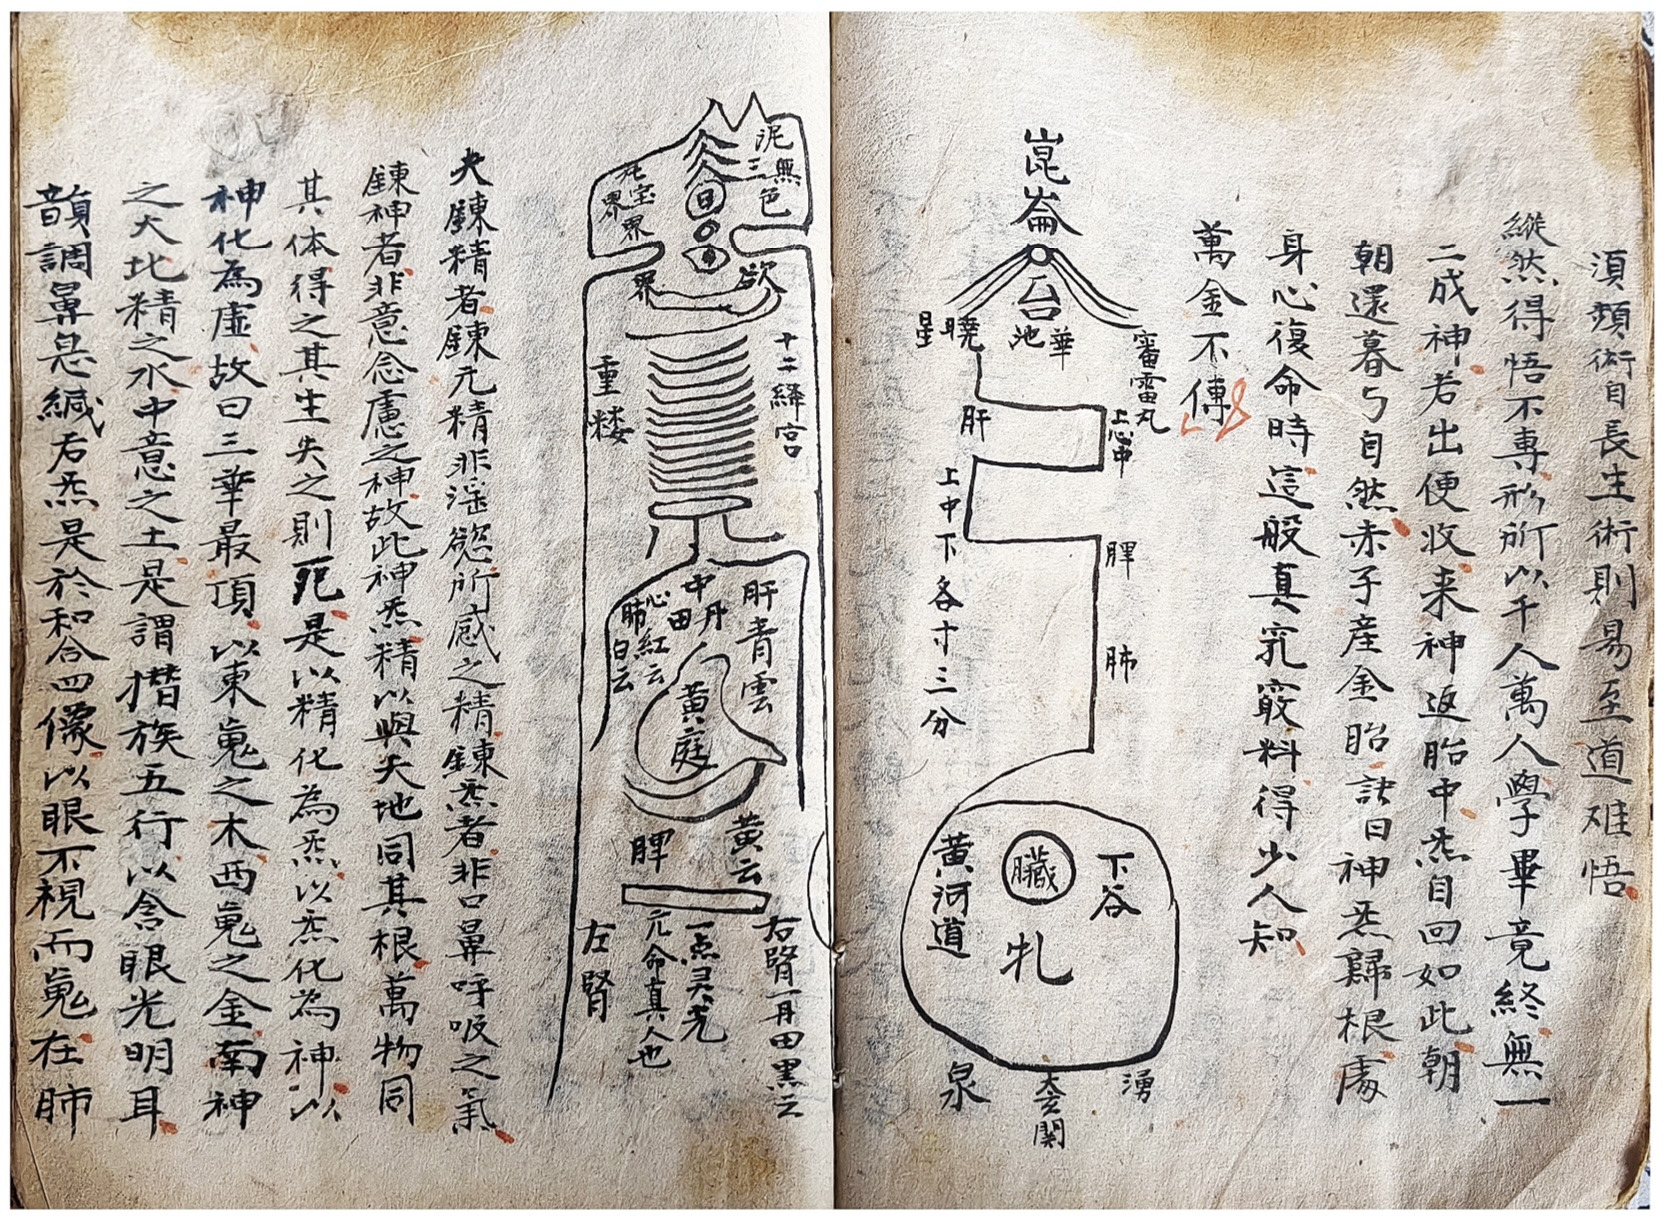 須類術自長生術則易至道难悟
縱然得悟不專形所以千人萬人學畢竟終無一
二成神若出便收来神返胎中炁自回如此朝
朝還暮与自然赤子産金胎訣曰神炁歸根處
身心復命時這般真竅料得少人知
萬金不傳
崑崙
台
華池
曉星
審雷丸
肝
上心中
上中下各寸三分
脾
肺
下谷
臟
牝
黄河道
湧
玄関
泉
泥
無色
三
界
宝界
欲
界
十二絳宮
重楼
肝青雲
中丹田
心紅云
肺白云
黄庭
黄云
脾
右腎
黑云
一点灵光
元命真人也
左腎
夫錬精者錬元精非淫慾所感之精錬炁者非口鼻呼吸之氣
錬神者非意念慮之神故此神炁精以與天地同其根萬物同
其体得之其生失之則死是以精化為炁以炁化為神以
神化為虚故曰三華最項以東䰟之木西䰟之金南神
之火北精之水中意之土是謂攒族五行以含眼光明耳
韻調鼻息緘右炁是於和合四像以眼不視而䰟在肺